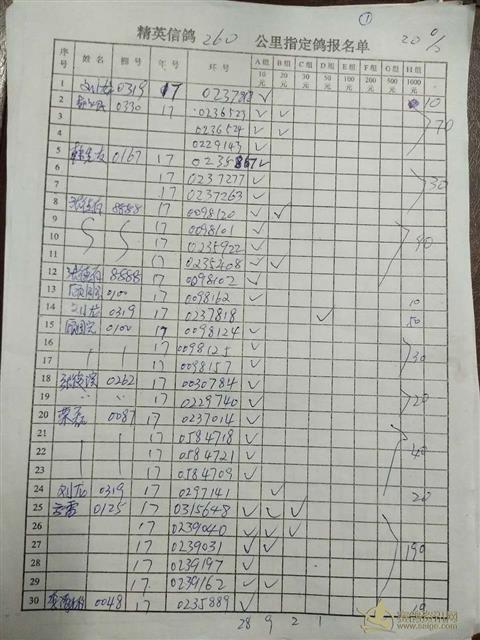 ①
精英信鸽 260 公里指定鸽报名单 20%
序号 姓名 棚号 年号 环号 A组10元 B组20元 C组30元 D组50元 E组100元 F组200元 G组500元 H组1000元
1 刘龙 0319 17 0237787 ✓ 10
2 0330 17 0236523 ✓ ✓
3 0236524 ✓ ✓ 70
4 0229143 ✓
5 0167 17 0235867 ✓
6 17 0237277 ✓ 30
7 17 0237263 ✓
8 8888 17 0098120 ✓ ✓
9 17 0098101 ✓
10 17 0235922 ✓ 90
11 17 0235408 ✓ ✓
12 8888 17 0098102 ✓
13 0100 17 0098162 ✓ 10
14 刘龙 0319 17 0237818 ✓ 50
15 0100 17 0098124 ✓
16 17 0098125 ✓ 30
17 17 0098157 ✓
18 0262 17 0030784 ✓
19 17 0229740 ✓ 20
20 荣磊 0087 17 0237014 ✓
21 17 0584718 ✓
22 17 0584721 ✓ 40
23 17 0584709 ✓
24 刘龙 0319 17 0297141 ✓ 20
25 云雷 0125 17 0315648 ✓ ✓ ✓
26 17 0239040 ✓ ✓ ✓
27 17 0239031 ✓ ✓ 190
28 17 0239197 ✓
29 17 0239162 ✓ ✓
30 0048 17 0235889 ✓ 10
28 9 2 1
www.saige.com